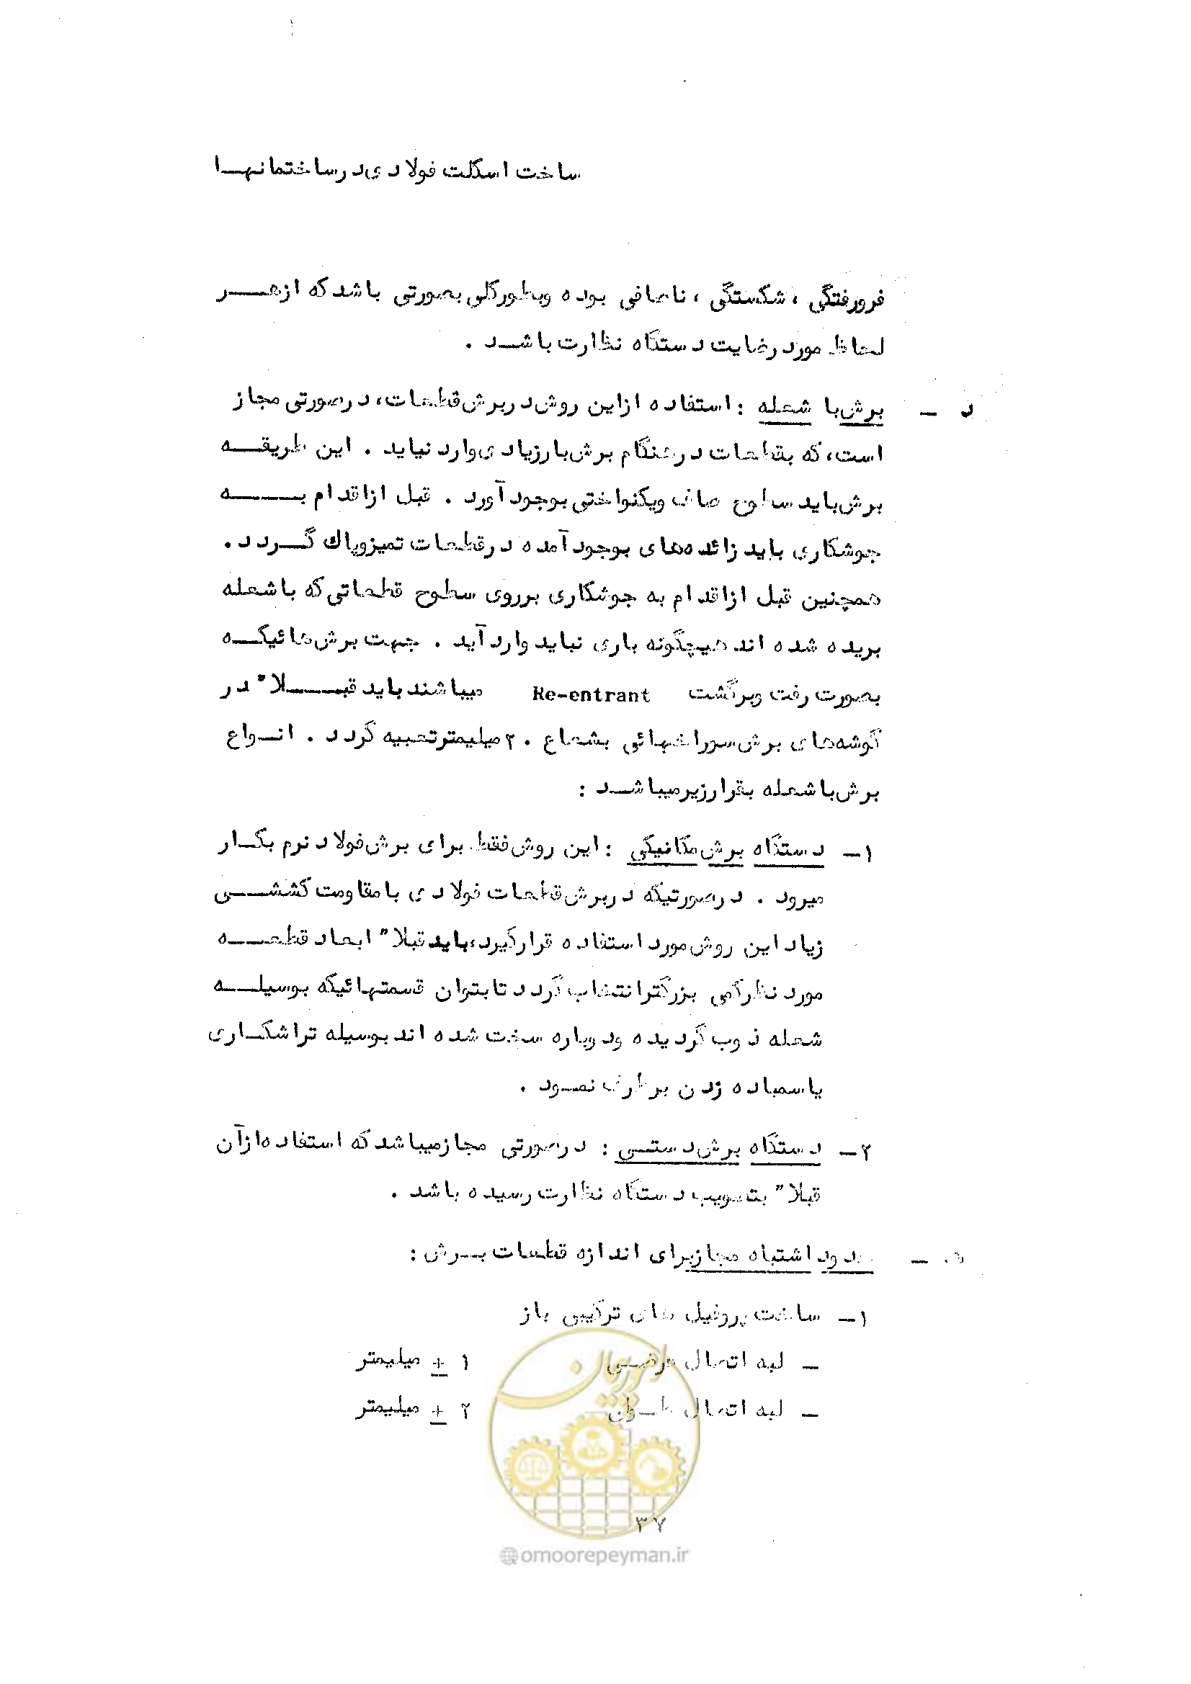 ساخت اسکلت فولادی در ساختمانهـا
فرورفتگی ، شکستگی ، ناصافی بوده و بطور کلی بصورتی باشد که از هـــر
لحاظ مورد رضایت دستگاه نظارت باشــد .
د – برش با شعله : استفاده از این روش در برش قطعات، در صورتی مجاز
است، که بقطعات در هنگام برش بار زیادی وارد نیاید . این طریقــه
برش باید سطوح صاف و یکنواختی بوجود آورد . قبل از اقدام بـــــه
جوشکاری باید زائده‌های بوجود آمده در قطعات تمیز و پاک گــردد .
همچنین قبل از اقدام به جوشکاری بر روی سطوح قطعاتی که با شعله
بریده شده اند هیچگونه باری نباید وارد آید . جهت برش‌هائیکــه
بصورت رفت و برگشت Re-entrant میباشند باید قبـــــلا" در
گوشه‌های برش سوراخهائی بشعاع ۲۰ میلیمتر تعبیه گردد . انــواع
برش با شعله بقرار زیر میباشــد :
۱– دستگاه برش مکانیکی : این روش فقط برای برش فولاد نرم بکـار
میرود . در صورتیکه در برش قطعات فولادی با مقاومت کششــــی
زیاد این روش مورد استفاده قرار گیرد، باید قبلا" ابعاد قطعــــه
مورد نظر کمی بزرگتر انتخاب گردد تا بتوان قسمتهائیکه بوسیلــه
شعله ذوب گردیده و دوباره سخت شده اند بوسیله تراشکــاری
یا سمباده زدن بر طرف نمــود .
۲– دستگاه برش دستــی : در صورتی مجاز میباشد که استفاده از آن
قبلا" بتصویب دستگاه نظارت رسیده باشد .
– حدود اشتباه مجاز برای اندازه قطعات بــرش :
۱– ساخت پروفیل های ترکیبی باز
– لبه اتصال عرضــی ۱ ± میلیمتر
– لبه اتصال طــولی ۲ ± میلیمتر
امور پیمان
۳۷
@omoorepeyman.ir